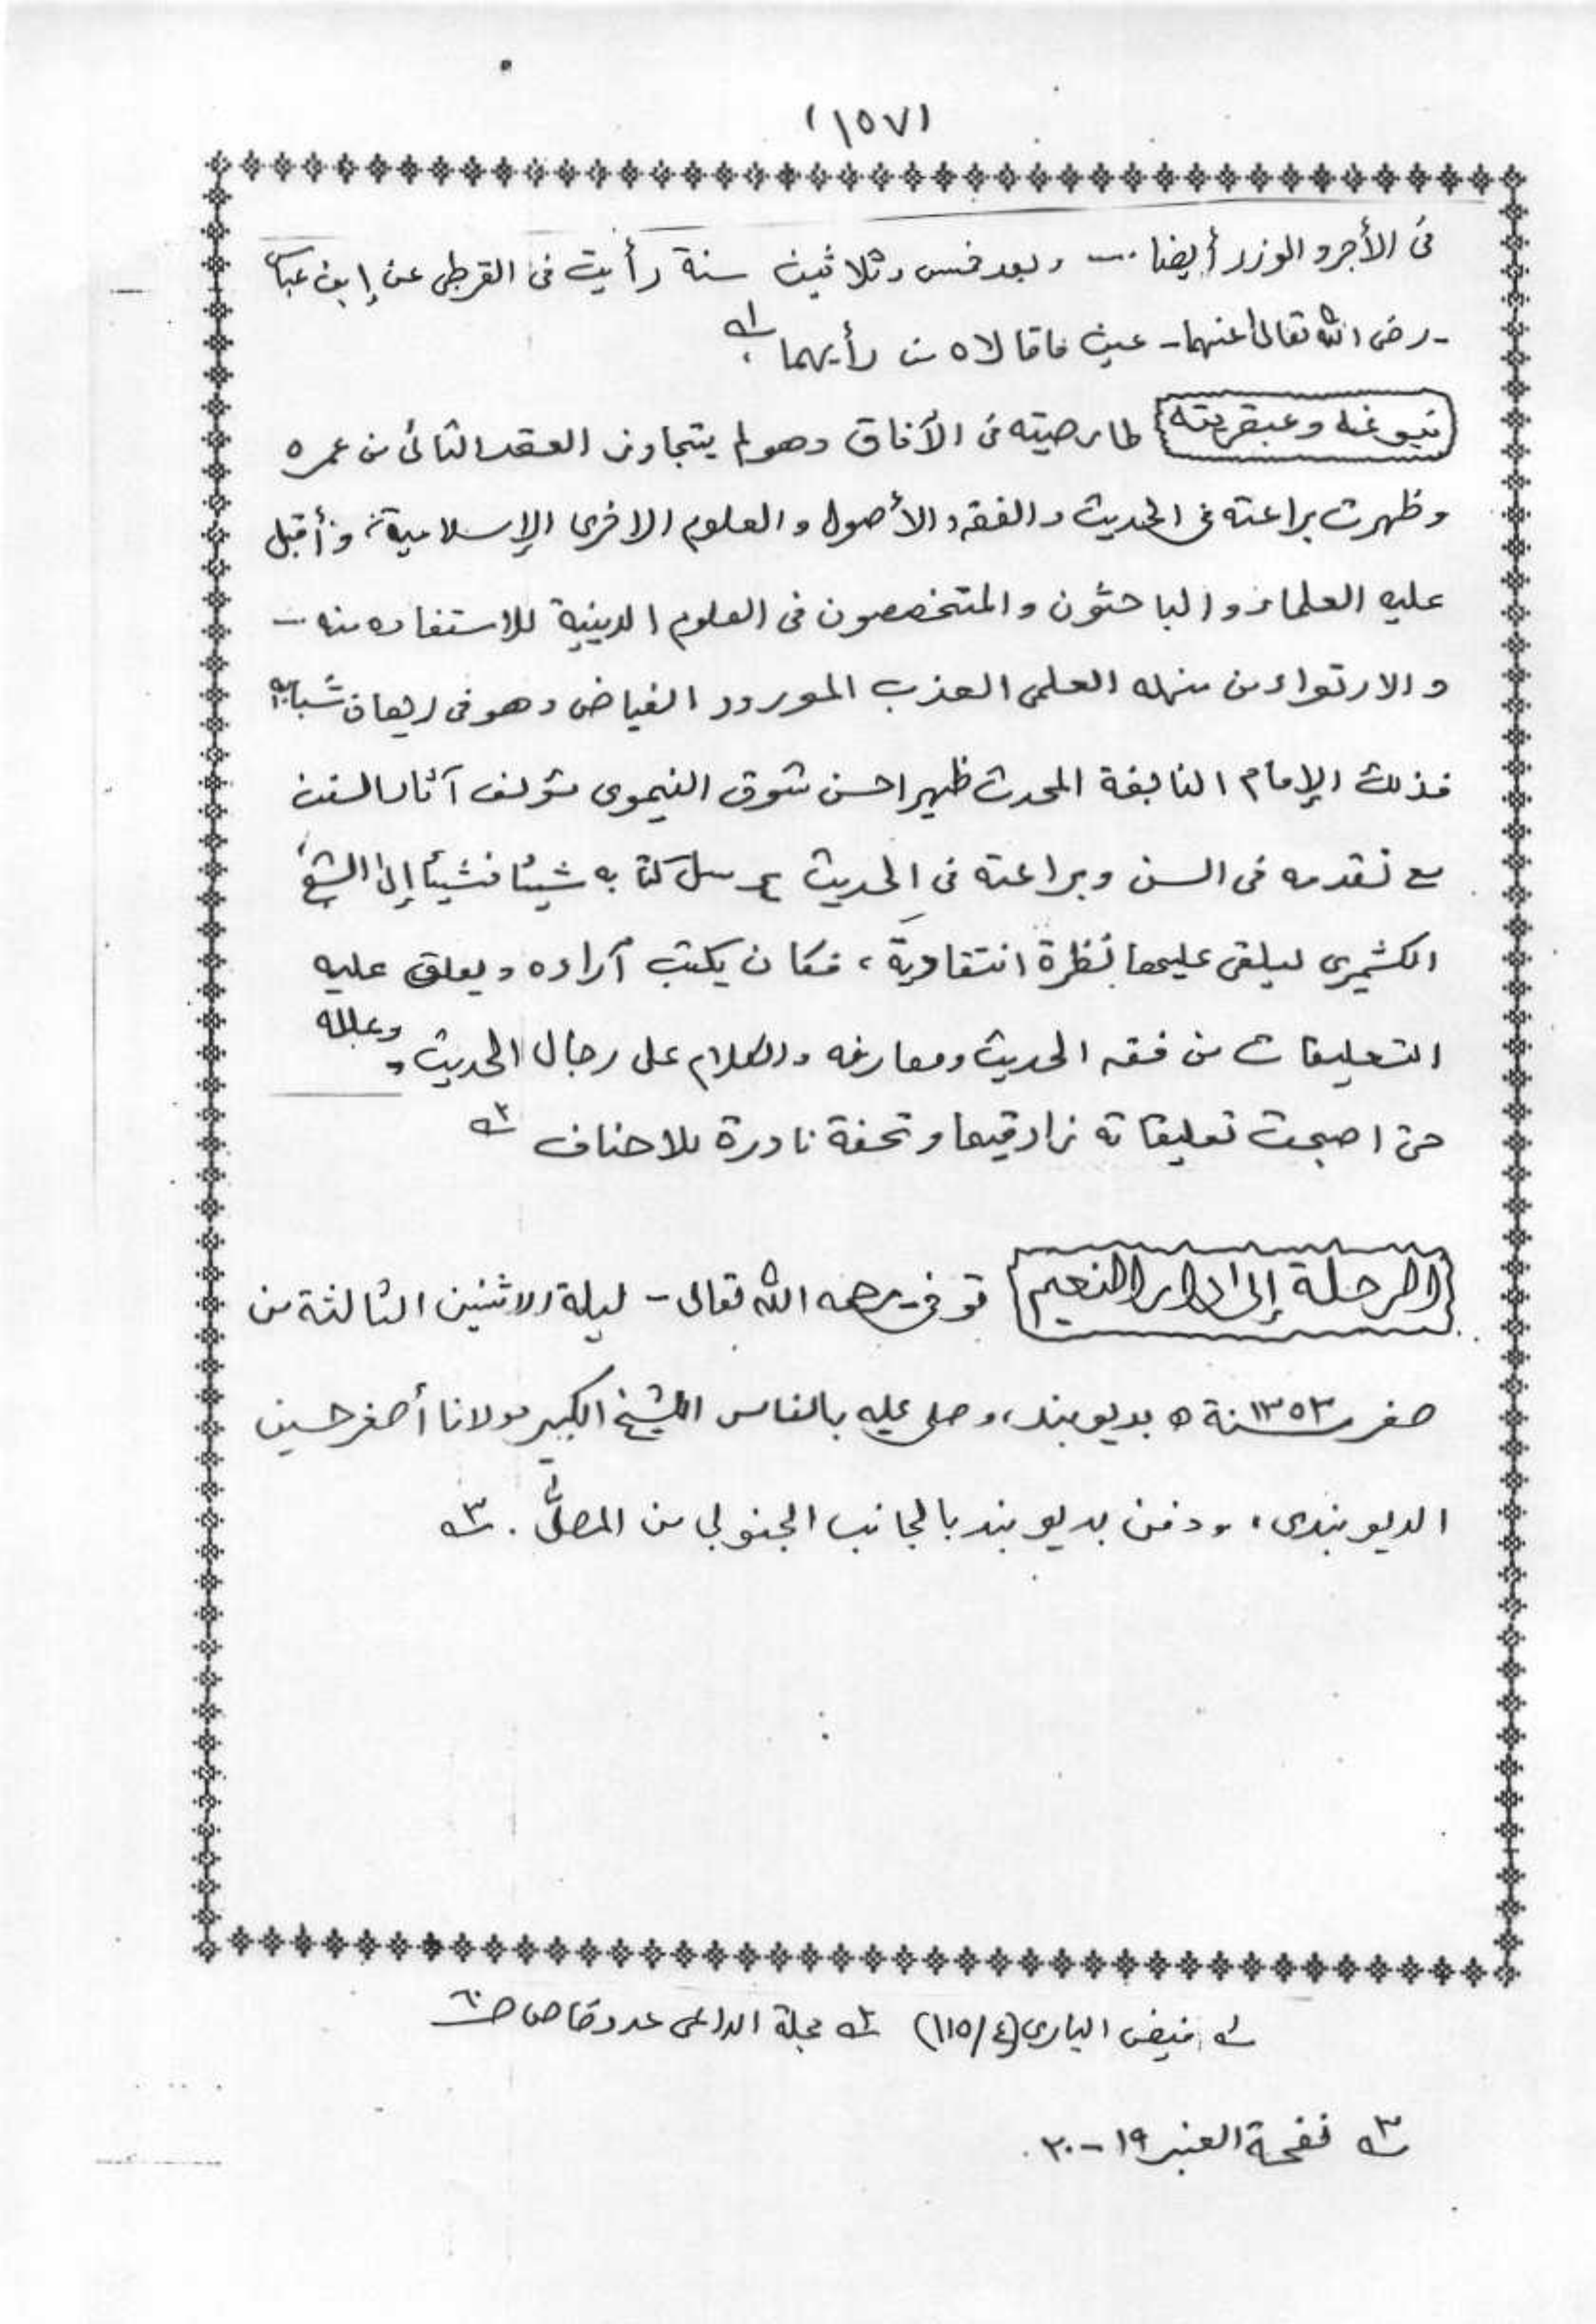 (١٥٧)
فى الأجر و الوزر أيضا .... وبعد خمس وثلاثين سنة رأيت فى القرطبى عن إبن عباس
- رضى الله تعالى عنهما - عين ماقالاه من رأيهما ؛ ١ـه
نبوغه وعبقريته طار صيته فى الآفاق وهو لم يتجاوز العقد الثانى من عمره
وظهرت براعته فى الحديث والفقه والأصول والعلوم الاخرى الإسلامية، وأقبل
عليه العلماء والباحثون والمتخصصون فى العلوم الدينية للاستفاده منه –
و الارتواء من منهله العلمى العذب المورود الفياض وهو فى ريعان شبابه
فذلك الإمام النابغة المحدث ظهير احسن شوق النيموى مؤلف آثار السنن
مع تقدمه فى السن وبراعته فى الحديث يرسل كتابه شيئا فشيئا إلى الشيخ
الكشميرى ليلقى عليها نظرة انتقادية ، فكان يكتب آراده ويعلق عليه
التعليقات من فقه الحديث ومعارفه والكلام على رجال الحديث وعلله
حتى اصبحت تعليقاته زادقيما وتحفة نادرة للاحناف ٢ـه
الرحلة إلى دار النعيم توفى - رحمه الله تعالى - ليلة الاثنين الثالثة من
صفر سنة ١٣٥٣ ه بديوبند، وصلى عليه بالناس الشيخ الكبير مولانا أصغر حسين
الديوبندى، ودفن بديوبند بالجانب الجنوبي من المصلّى . ٣ـه
١ـه فيض البارى (٤/١١٥) ٢ـه مجلة الداعى عدد خاص صـ ٦٠
٣ـه نفحة العنبر ١٩ - ٢٠.